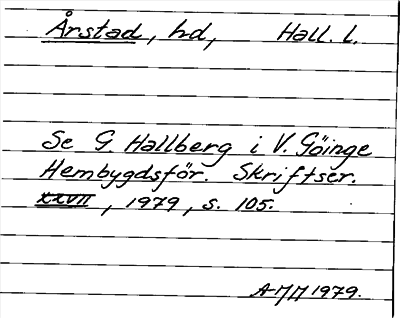 Årstad, hd, Hall. l.
Se G Hallberg i V. Göinge
Hembygdsför. Skriftser.
XXVII, 1979, s. 105.
AMM 1979.